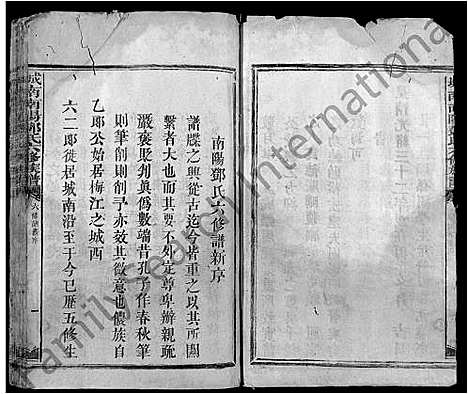 南陽鄧氏六修譜新序
譜牒之興從古迄今皆重之以其所關
繫者大也而其要不外定尊卑辨親疏
嚴褒貶別眞僞數端昔孔子作春秋筆
則筆削則削予亦效其微意也儂族自
乙郎公始居梅江之城西
六二郎徙居城南沿至于今已歷五修生
城南南陽鄧氏六修族譜
一
光緒三十二年
FamilySearch International